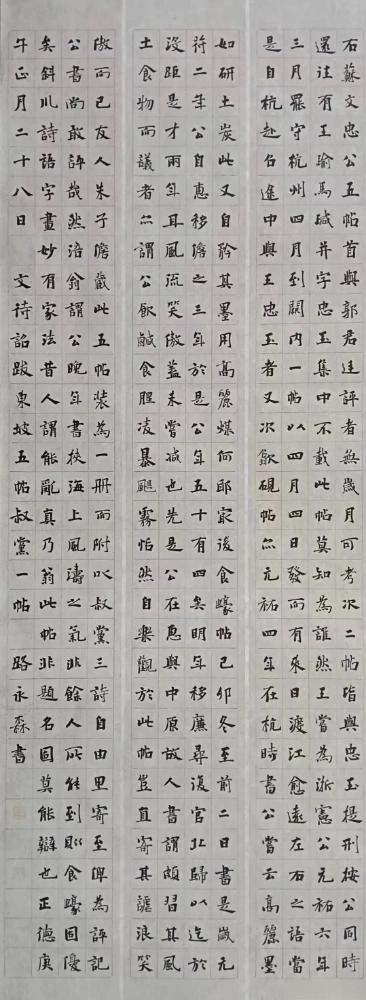 右蘇文忠公五帖首與郭君廷評者無歲月可考次二帖皆與忠玉提刑按公同時
還往有王瑜馬瑊并字忠玉集中不載此帖莫知為誰然王嘗為浙憲公元祐六年
三月罷守杭州四月到闕內一帖以四月四日發而有來日渡江愈遠左右之語當
是自杭赴召途中與王忠玉者又次歙硯帖亦元祐四年在杭時書公嘗云高麗墨
如研土炭此又自矜其墨用高麗煤何耶最後食蠔帖己卯冬至前二日書是歲元
符二年公自惠移儋之三年於是公年五十有四矣明年移廉尋復官北歸以迄於
沒距是才兩年耳風流笑傲蓋未嘗減也先是公在惠與中原故人書謂頗習其風
土食物而議者亦謂公厭鹹食腥凌暴颶霧恬然自樂觀於此帖豈直寄其謔浪笑
傲而已友人朱子儋藏此五帖裝為一冊而附以叔黨三詩自由里寄至俾為評記
公書尚敢評哉然涪翁謂公晚年書挾海上風濤之氣非餘人所能到耶食蠔固優
矣斜川詩語字畫妙有家法昔人謂能亂真乃翁此帖帖非題名固莫能辯也正德庚
午正月二十八日 文待詔跋東坡五帖叔黨一帖 路永森書